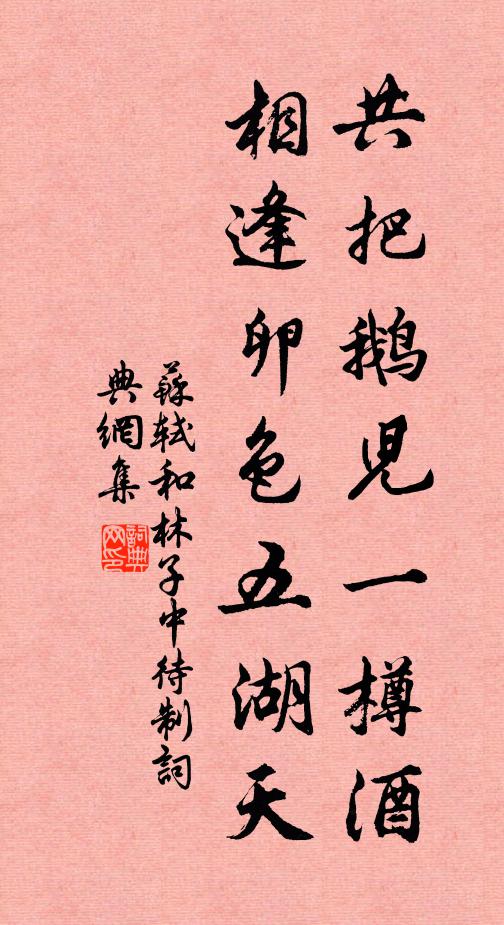 共把鵝兒一樽酒
相逢卵色五湖天
蘇軾和林子中待制詞
典網集
詞典
网印